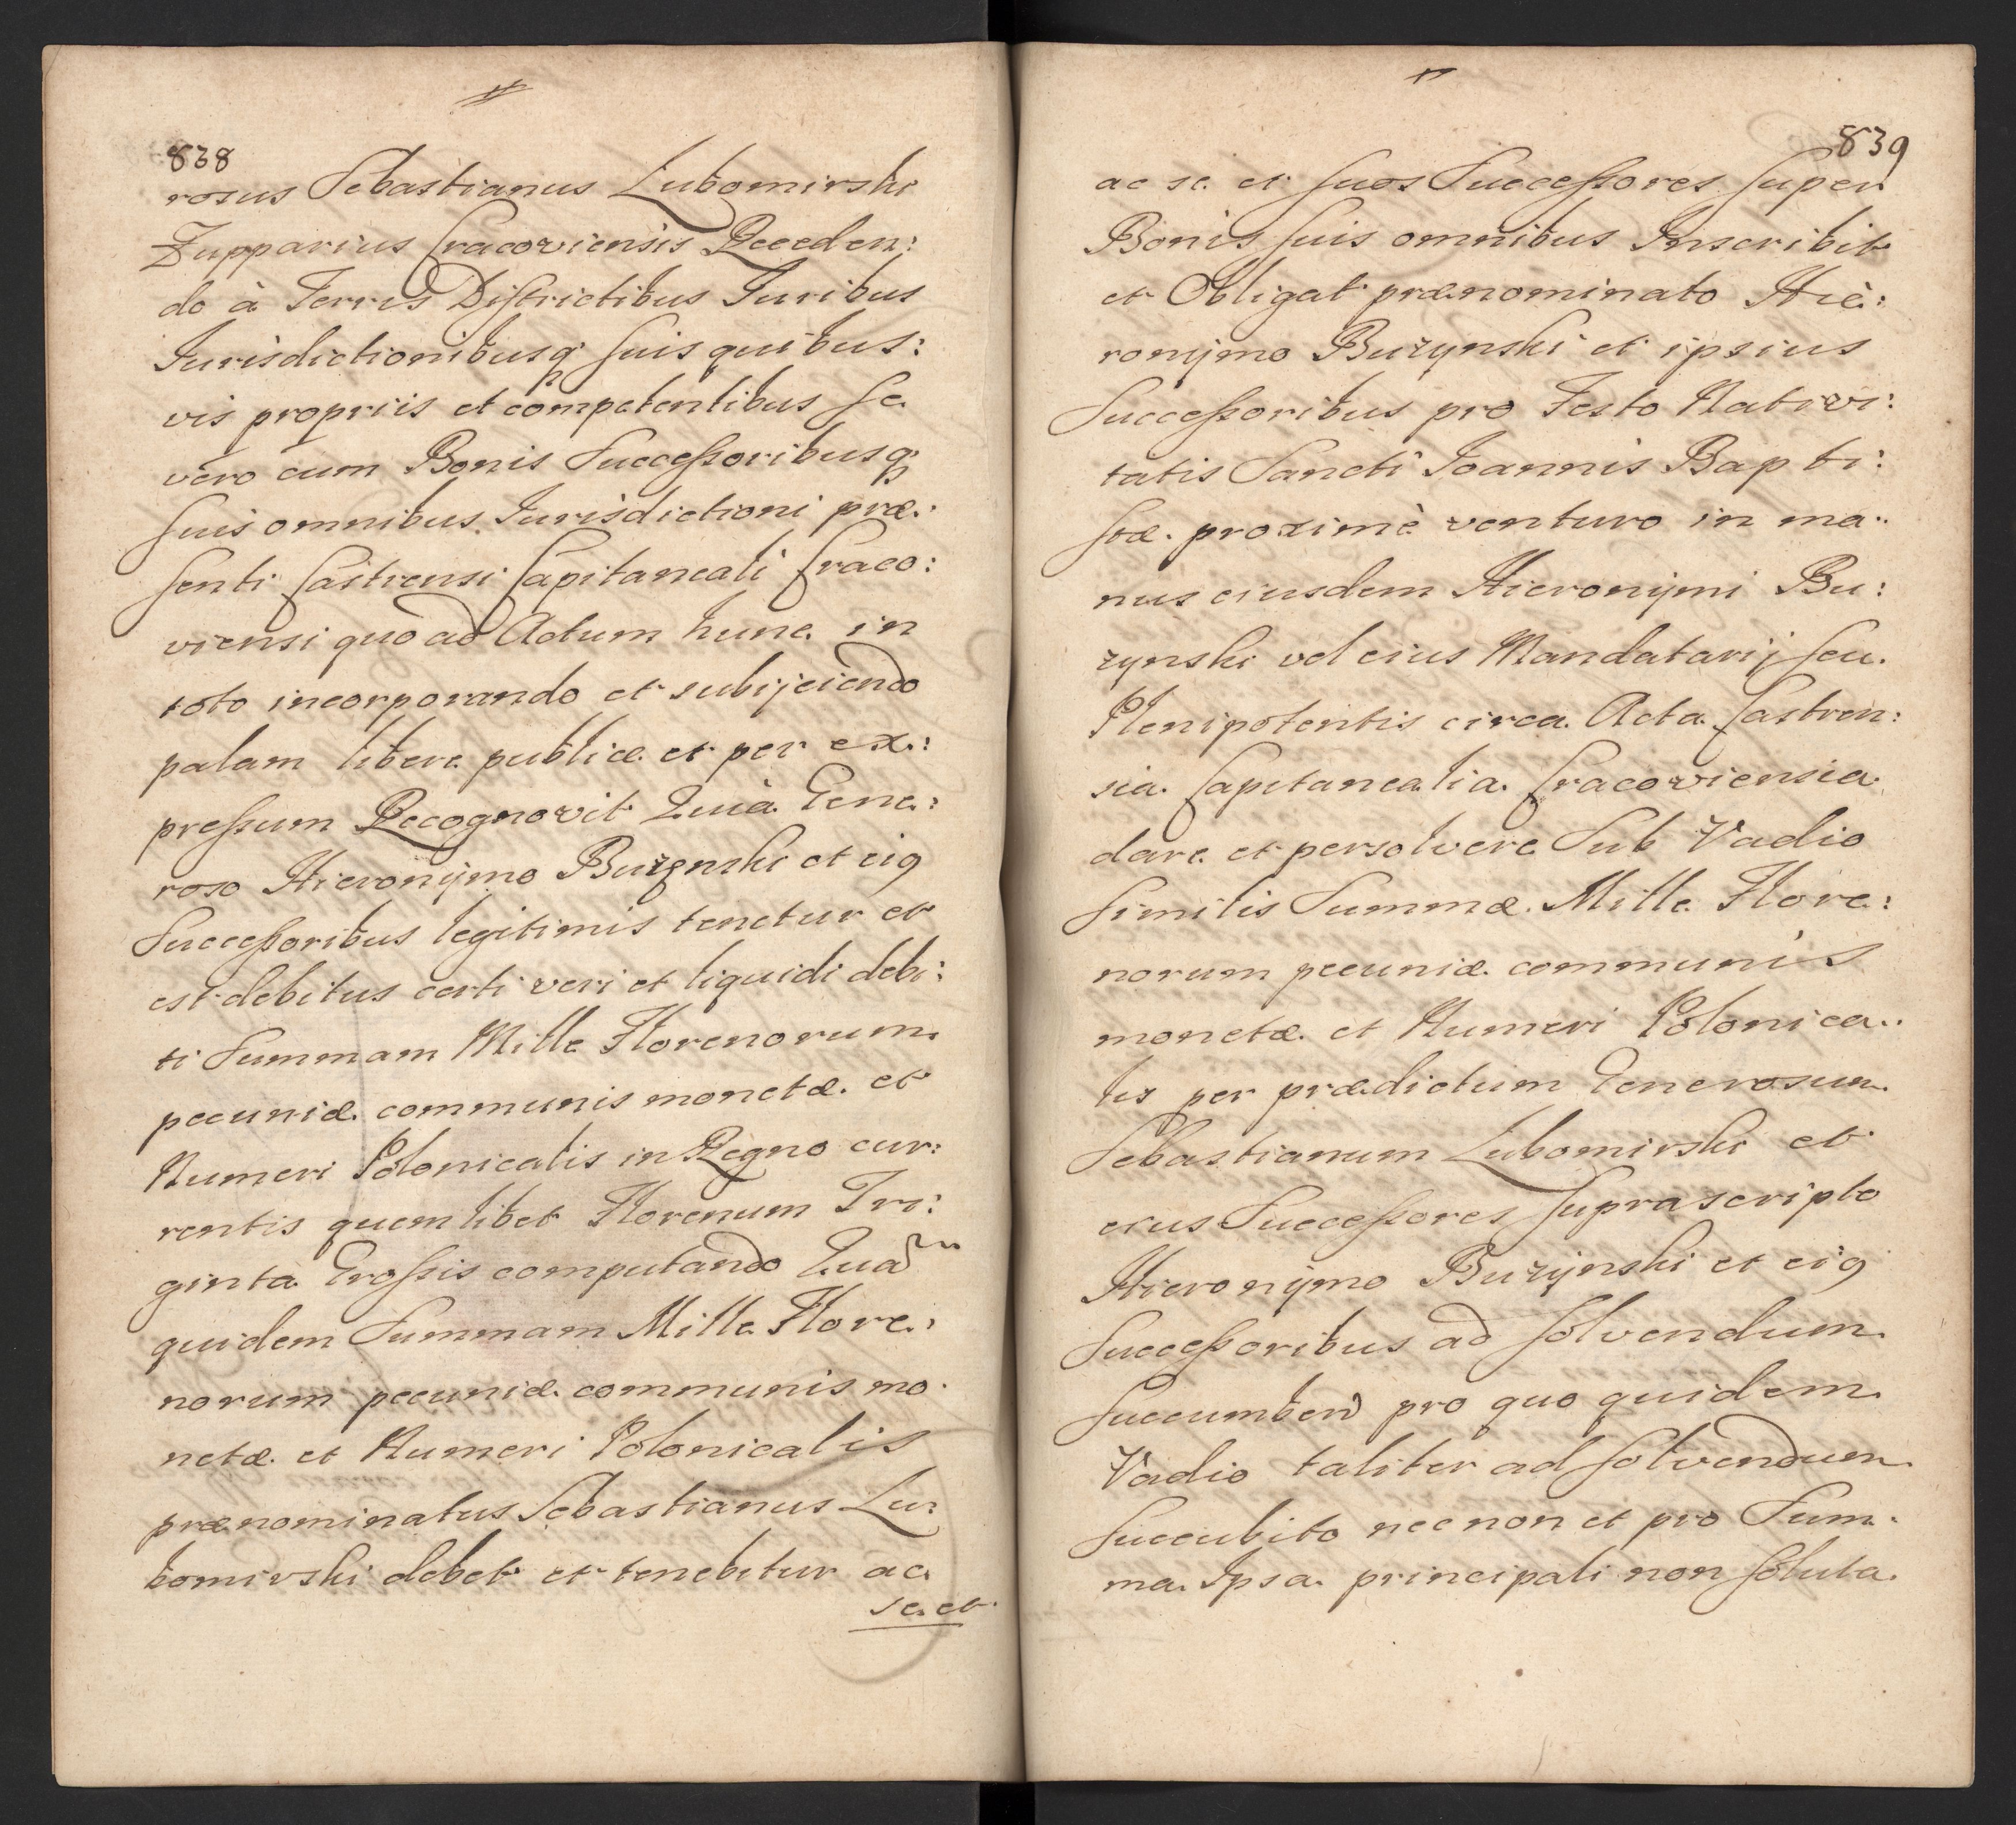 838
rosus Sebastianus Lubomirski
Zupparius Cracoviensis Receden:
do à Terris Districtibus Juribus
Jurisdictionibusq suis quibus:
vis propriis et competentibus se
vero cum Bonis Successoribusq;
suis omnibus Jurisdictioni præ:
senti Castrensi Capitaneali Craco:
viensi quo ad Actum hunc in
toto incorporando et subijciendo
palam libere publice et per ex:
pressum Recognovit Quià Gene:
roso Hieronÿmo Buzynski et eig
Successoribus legitimis tenetur et
est debitus certi veri et liquidi debi:
ti Summam Mille Florenorum
pecuniæ communis monetæ et
Numeri Polonicalis in Regno cur:
rentis quemlibet Florenum Tri:
ginta Grossis computando Quam
quidem Summam Mille Flore:
norum pecuniæ communis mo
netæ et Numeri Polonicalis
prænominatus Sebastianus Lu:
bomirski debet et tenebitur ac
se et
839
ac se et suos Successores super
Bonis suis omnibus Inscribit
et Obligat prænominato Hie:
ronÿmo Buzynski et ipsius
Successoribus pro Festo Nativi:
tatis Sancti Joannis Bapti:
stæ proximè venturo in ma:
nus eiusdem Hieronÿmi Bu:
zynski vel eius Mandatarij seu
Plenipotentis circa Acta Castren:
sia Capitanealia Cracoviensia
dare et persolvere Sub Vadio
similis Summæ Mille Flore:
norum pecuniæ communis
monetæ et Numeri Polonica:
lis per prædictum Generosum
Sebastianum Lubomirski et
eius Successores suprascripto
Hieronÿmo Buzÿnski et eig
Successoribus ad solvendum
succumbend pro quo quidem
Vadio taliter ad solvendum
succubito necnon et pro Sum:
ma Ipsa principali non soluta